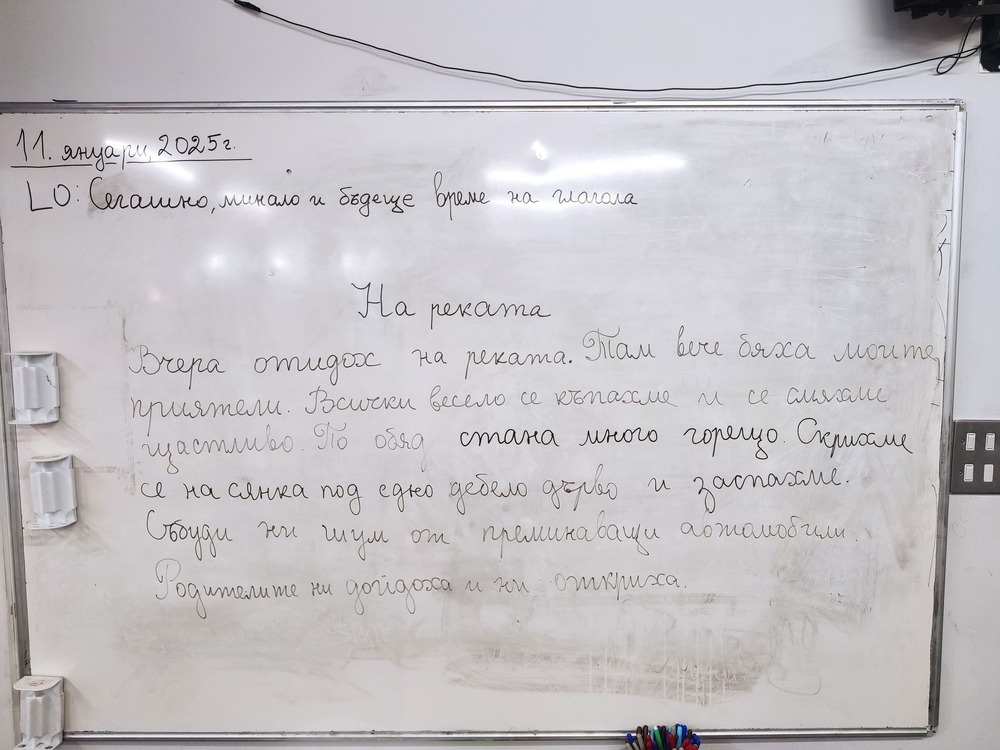 11. януари, 2025г.
LO: Сегашно, минало и бъдеще време на глагола
На реката
Вчера отидох на реката. Там вече бяха моите
приятели. Всички весело се къпахме и се смяхме
щастливо. По обяд стана много горещо. Скрихме
се на сянка под едно дебело дърво и заспахме.
Събуди ни шум от преминаващи автомобили.
Родителите ни дойдоха и ни откриха.